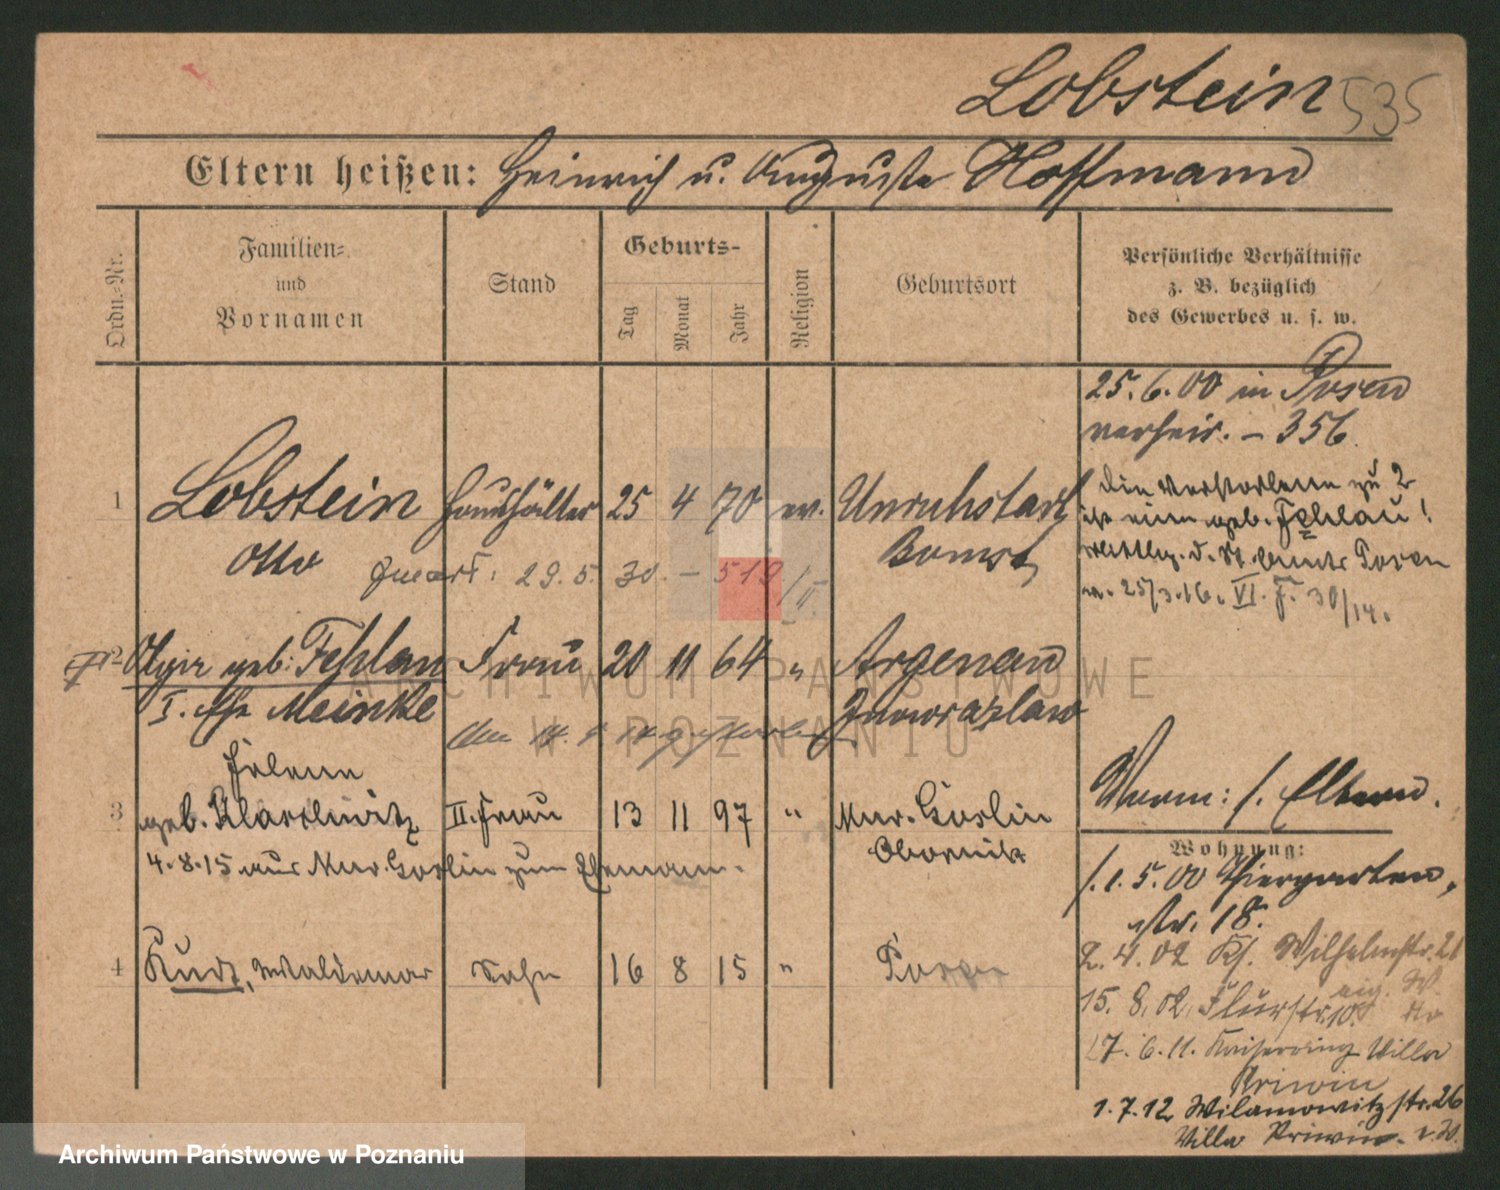 Lobstein 535
Eltern heißen: Heinrich u. Auguste Hoffmann
Ordn.-Nr.
Familien- und Vornamen
Stand
Geburts-
Tag
Monat
Jahr
Religion
Geburtsort
Persönliche Verhältnisse
z. B. bezüglich
des Gewerbes u. s. w.
25.6.00 in Posen
verheir. – 356
1 Lobstein Haushälter 25 4 70 ev. Unruhstadt
Otto Bomst
29.5.30. – 519/II
die Verstorbene zu 2
ist eine geb. Fehlau!
Posen
v. 25/3.16. VI. F. 30/14.
2 geb: Fehlau Frau 20 11 64 " Argenau
I. Ehe Meinke Inowrazlaw
Helene
3 geb. II. Frau 13 11 97 " Mur. Goslin
Obornik
4.8.15 aus Mur. Goslin zum Ehemann.
4 Kurt, Waldemar Sohn 16 8 15 " Posen
Verm: s. Eltern.
Wohnung:
5.00 Thiergarten
str. 18.
2.4.02 Wilhelmstr. 21
15.8.02 Flurstr. 10.
17.6.11. Kaiserring Villa
Priwin
1.7.12 Wilamowitzstr. 26
Villa Priwin
ARCHIWUM PAŃSTWOWE
W POZNANIU
Archiwum Państwowe w Poznaniu